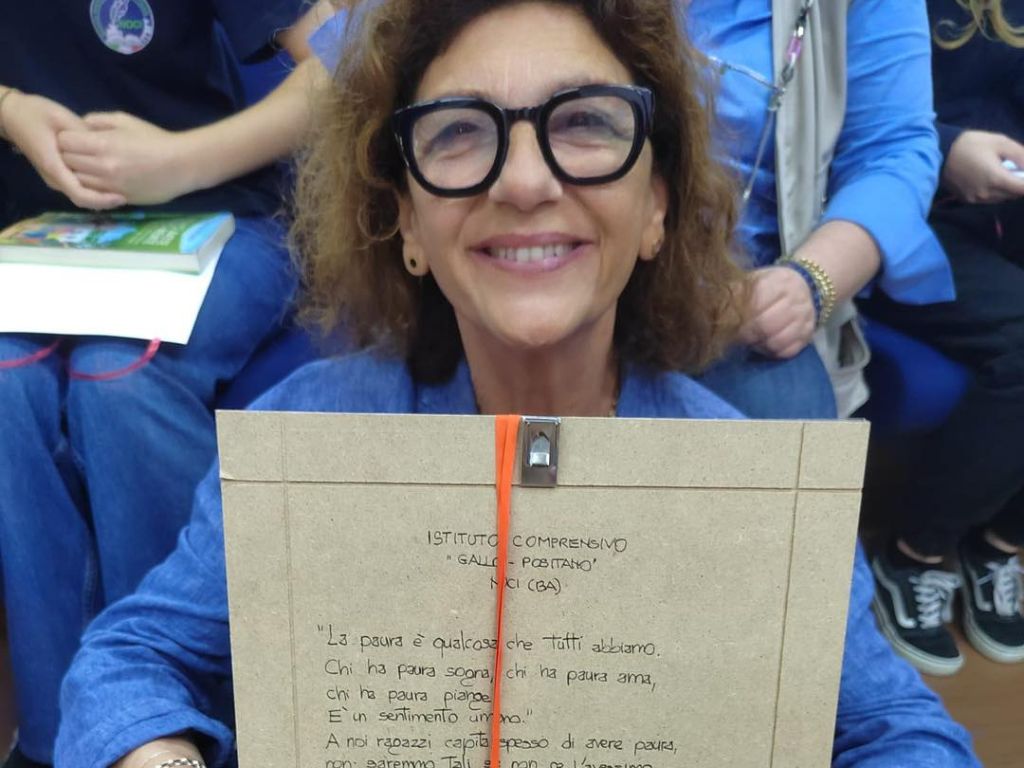 NOCI
ISTITUTO COMPRENSIVO
"GALLO - POSITANO"
NOCI (BA)
"La paura è qualcosa che tutti abbiamo.
Chi ha paura sogna, chi ha paura ama,
chi ha paura piange
E' un sentimento umano."
A noi ragazzi capita spesso di avere paura,
non saremmo tali se non ce l'avessimo